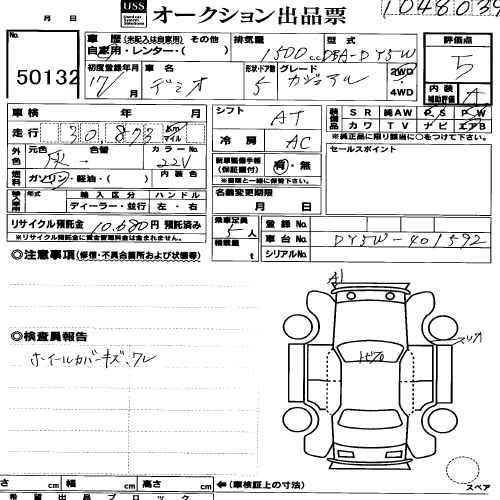 USS オークション出品票 1048039
月 日
No. 50132
車歴(未記入は自家用) その他
自家用・レンター・( )
排気量 1500cc
型式 DBA-DY5W
評価点 5
初度登録年月 17/ 月
車名 デミオ
形状・ドア数 5
グレード カジュアル
2WD
4WD
内装
補助評価 A
車検 年 月 日
シフト AT
装備品 SR 純AW PS PW
カワ TV ナビ エアB
※純正品に限り該当に○をつけて下さい。
走行 30,873 km マイル
冷房 AC
セールスポイント
外色 元色 灰 色替 カラーNo. 22V
新車整備手帳(保証書付) 有・無
※車検と一緒に保管下さい。
燃料 ガソリン・軽油・( ) 内装色
名義変更期限 月 日
輸入車用 年式 輸入区分 ハンドル
ディーラー・並行 左・右
リサイクル預託金 10,680円 預託済み
※リサイクル預託金に資金管理料金は含まれません。
乗車定員 5人
積載量 t
登録No.
車台No. DY5W-401592
シリアルNo.
◎注意事項(修復・不具合箇所および状態等)
A1
◎検査員報告
ホイールカバーキズ、ワレ
さ cm 幅 cm 高さ cm ←(車検証上の寸法)
スペア
希望出品ブロック